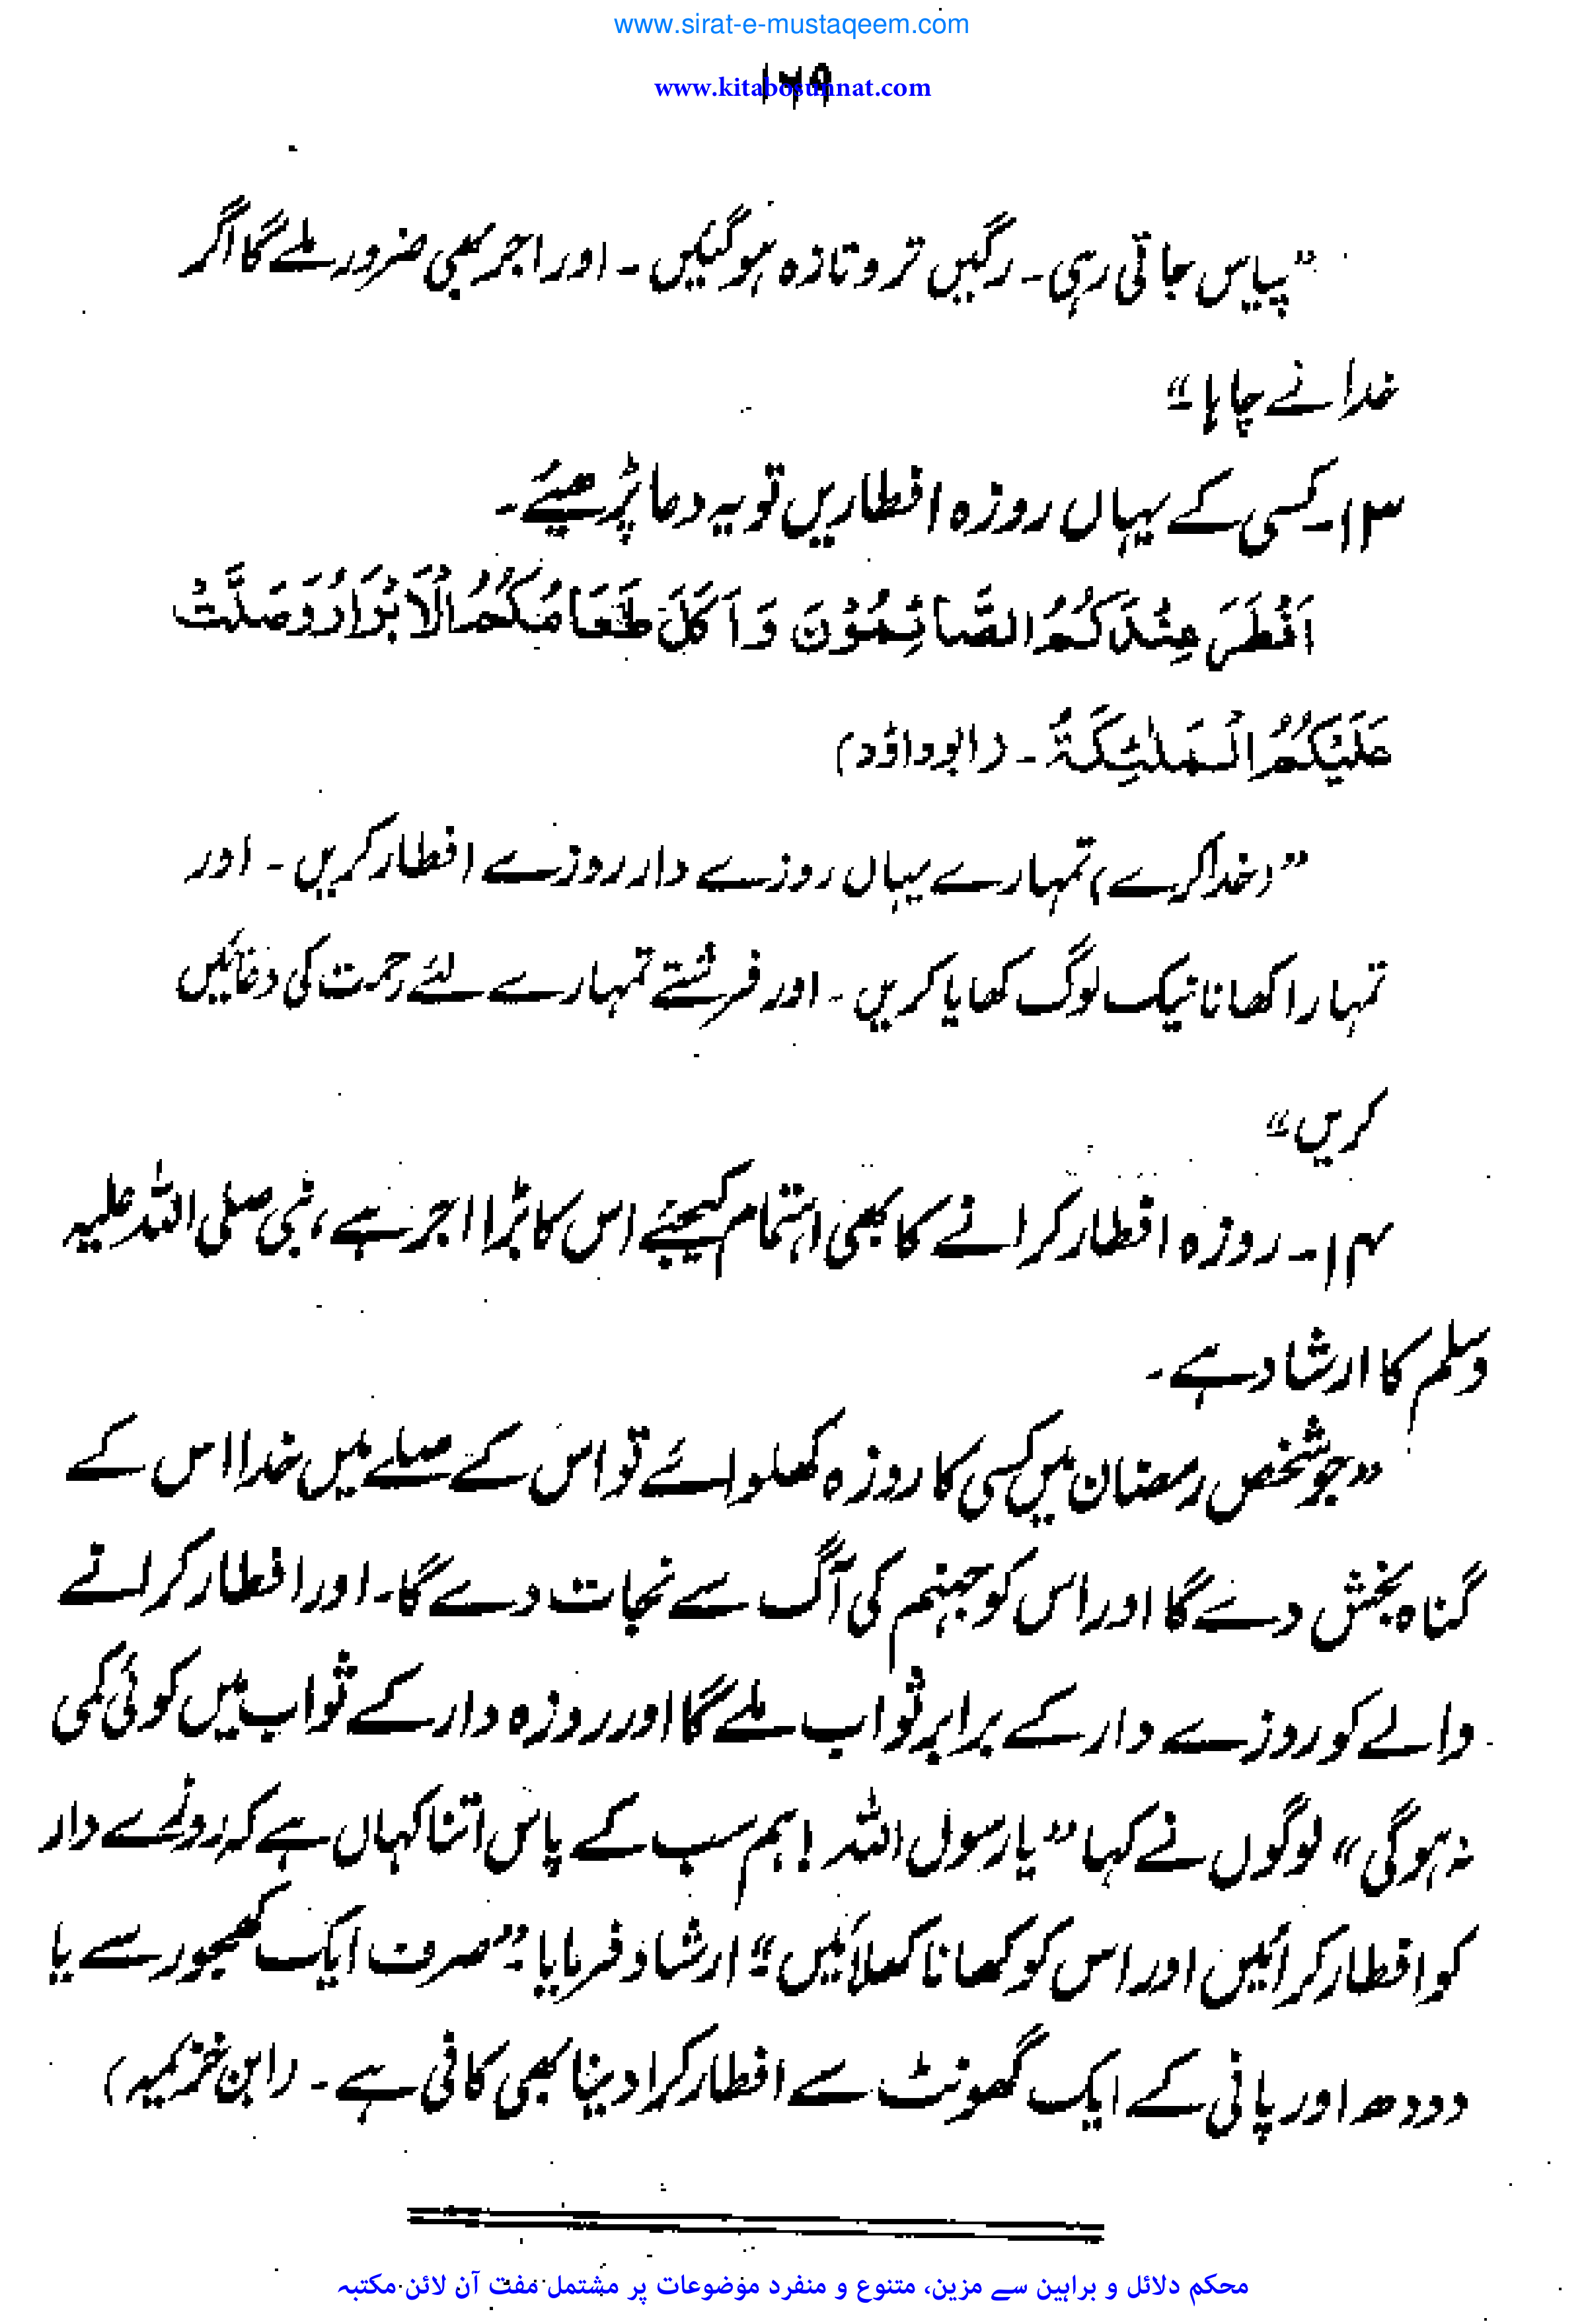 www.sirat-e-mustaqeem.com
۱۶۹
www.kitabosunnat.com
”پیاس جاتی رہی۔ رگیں تر و تازہ ہوگئیں۔ اور اجر بھی ضرور ملے گا اگر
خدا نے چاہا۔“
۱۳۔ کسی کے یہاں روزہ افطاریں تو یہ دعا پڑھیئے۔
اَفْطَرَ عِنْدَكُمُ الصَّائِمُوْنَ وَاَكَلَ طَعَامُكُمُ الْاَبْرَارُ وَصَلَّتْ
عَلَيْكُمُ الْمَلٰئِكَةُ۔ (ابوداؤد)
”(خدا کرے) تمہارے یہاں روزے دار روزے افطار کریں۔ اور
تمہارا کھانا نیک لوگ کھایا کریں۔ اور فرشتے تمہارے لئے رحمت کی دعائیں
کریں۔“
۱۴۔ روزہ افطار کرانے کا بھی اہتمام کیجئے اس کا بڑا اجر ہے، نبی صلی اللہ علیہ
وسلم کا ارشاد ہے۔
”جو شخص رمضان میں کسی کا روزہ کھلوائے تو اس کے صلے میں خدا اس کے
گناہ بخش دے گا اور اس کو جہنم کی آگ سے نجات دے گا۔ اور افطار کرانے
والے کو روزے دار کے برابر ثواب ملے گا اور روزہ دار کے ثواب میں کوئی کمی
نہ ہوگی“ لوگوں نے کہا ”یا رسول اللہ! ہم سب کے پاس اتنا کہاں ہے کہ روزے دار
کو افطار کرائیں اور اس کو کھانا کھلائیں۔“ ارشاد فرمایا: ”صرف ایک کھجور سے یا
دودھ اور پانی کے ایک گھونٹ سے افطار کرا دینا بھی کافی ہے۔ (ابن خزیمہ)
محکم دلائل و براہین سے مزین، متنوع و منفرد موضوعات پر مشتمل مفت آن لائن مکتبہ